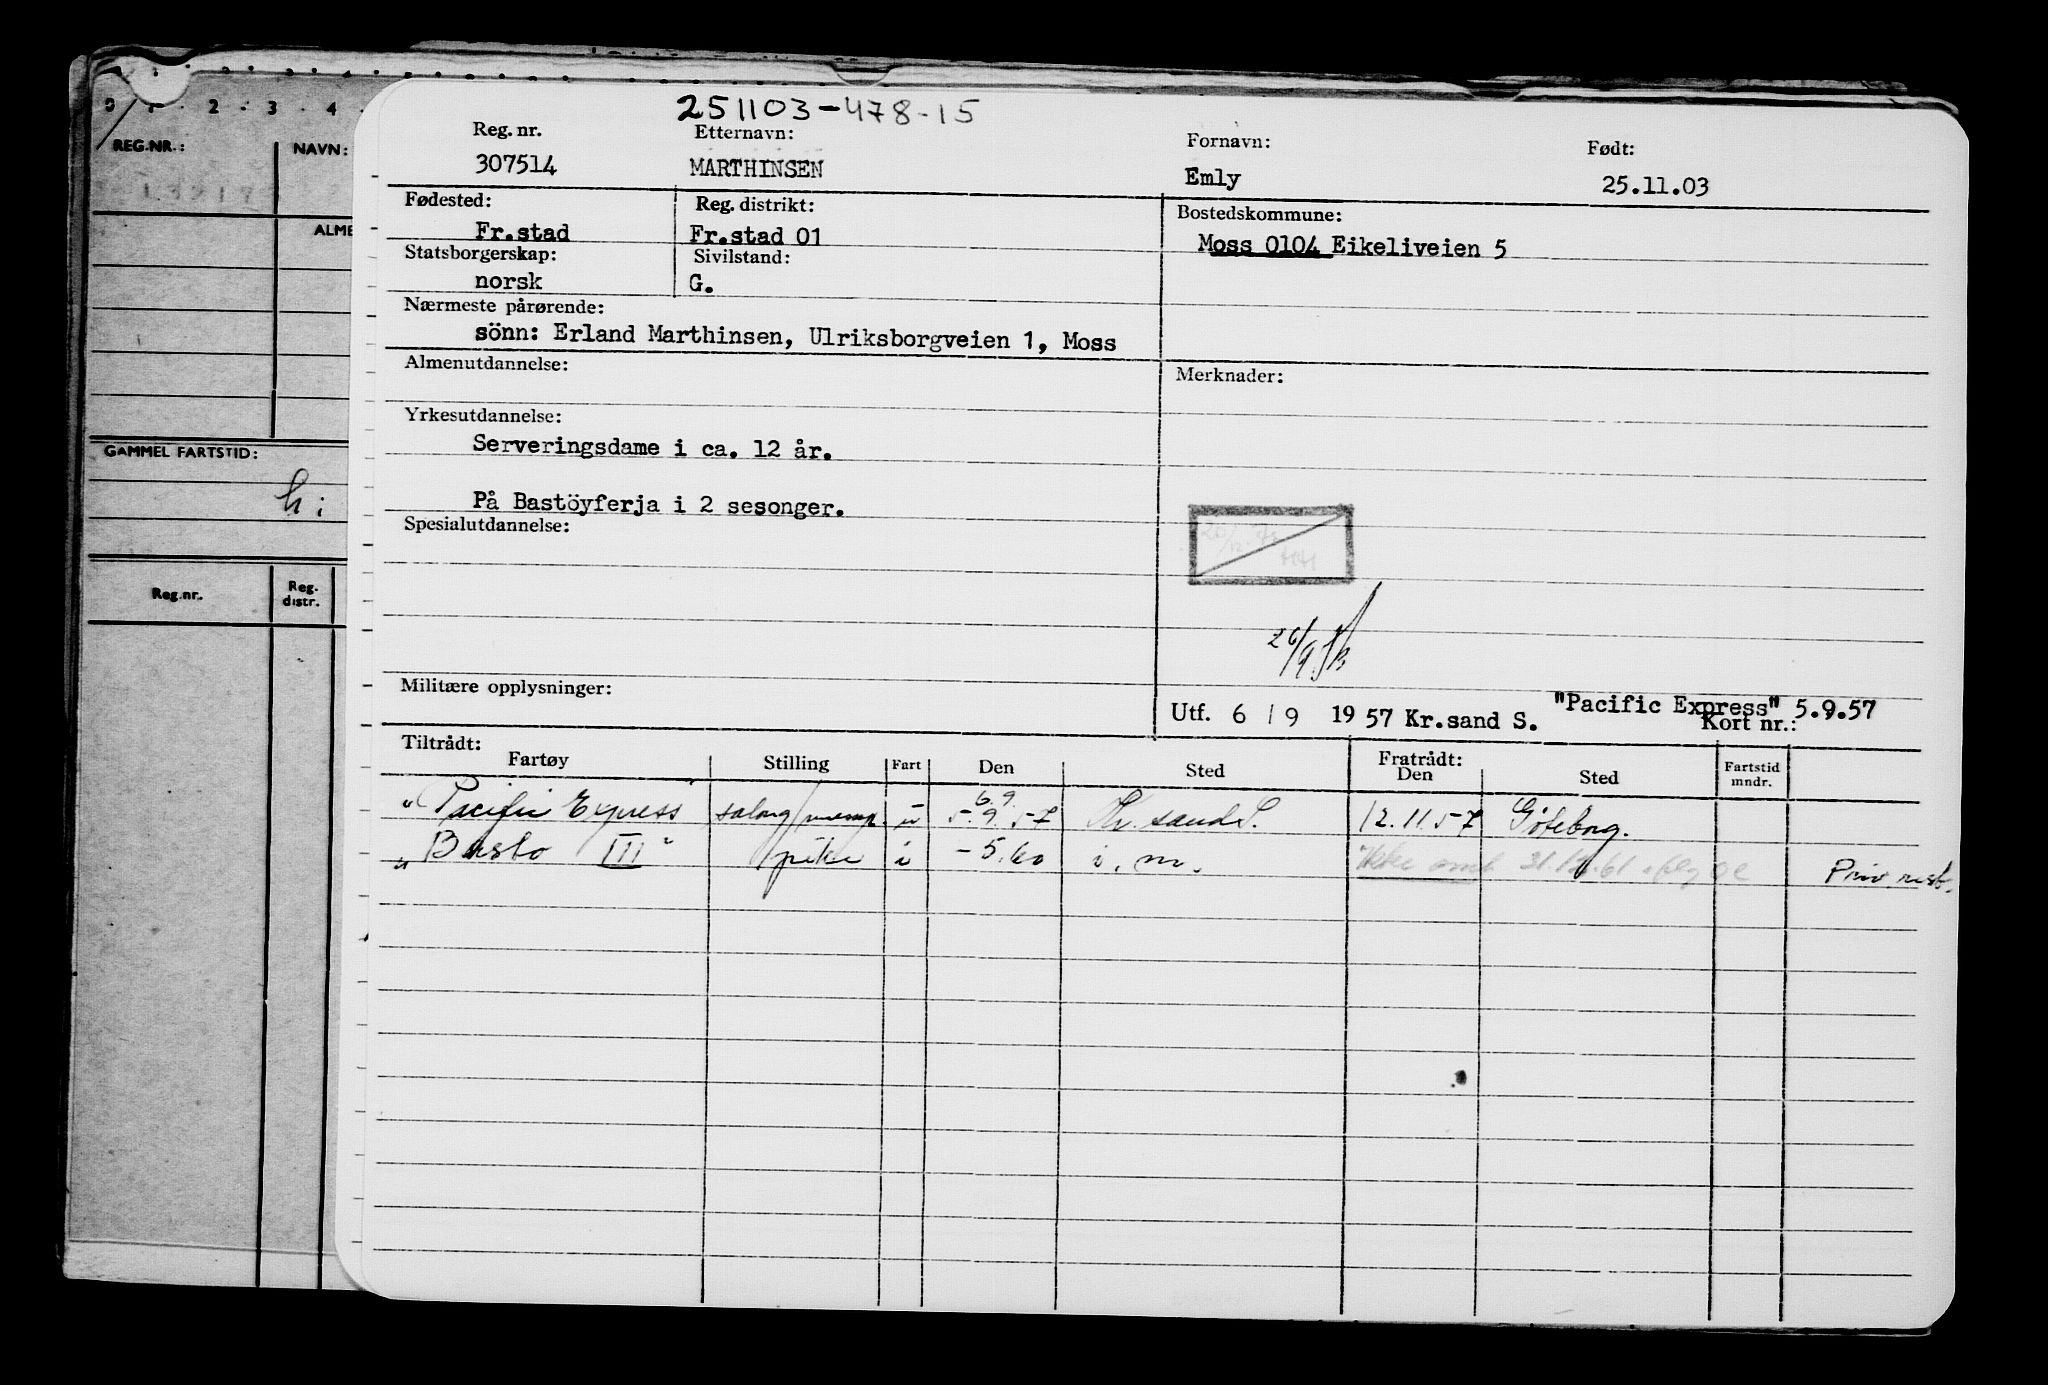 251103-478-15
Reg. nr. Etternavn: Fornavn: Født:
307514 MARTHINSEN Emly 25.11.03
Fødested: Reg. distrikt: Bostedskommune:
Fr.stad Fr.stad 01 Moss 0104 Eikeliveien 5
Statsborgerskap: Sivilstand:
norsk G.
Nærmeste pårørende:
sönn: Erland Marthinsen, Ulriksborgveien 1, Moss
Almenutdannelse: Merknader:
Yrkesutdannelse:
Serveringsdame i ca. 12 år.
På Bastöyferja i 2 sesonger.
Spesialutdannelse:
26/9
Militære opplysninger:
"Pacific Express" 5.9.57
Utf. 6 / 9 1957 Kr.sand S. Kort nr.:
Tiltrådt: Fratrådt:
Fartøy Stilling Fart Den Sted Den Sted Fartstid mndr.
6.9.
"Pacific Express" salong u 5.9.57 Kr.sand S. 12.11.57 Göteborg.
"Basto III" pike i -5.60 i.m. 31.12.61 Priv. rest.
0 1 2 3 4
REG.NR.: NAVN:
ALME
GAMMEL FARTSTID:
h i
Reg.nr. Reg. distr.